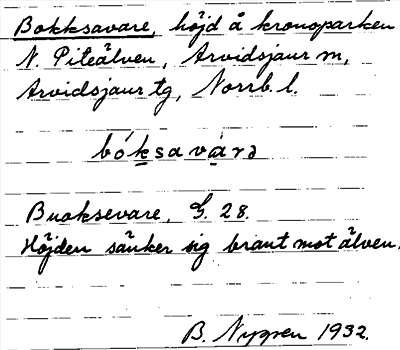 Bokksavare, höjd å kronoparken
N. Piteälven, Arvidsjaur sn,
Arvidsjaur tg, Norrb. l.
bóksavàrə
Buoksevare, G. 28.
Höjden sänker sig brant mot älven.
B. Nygren 1932.